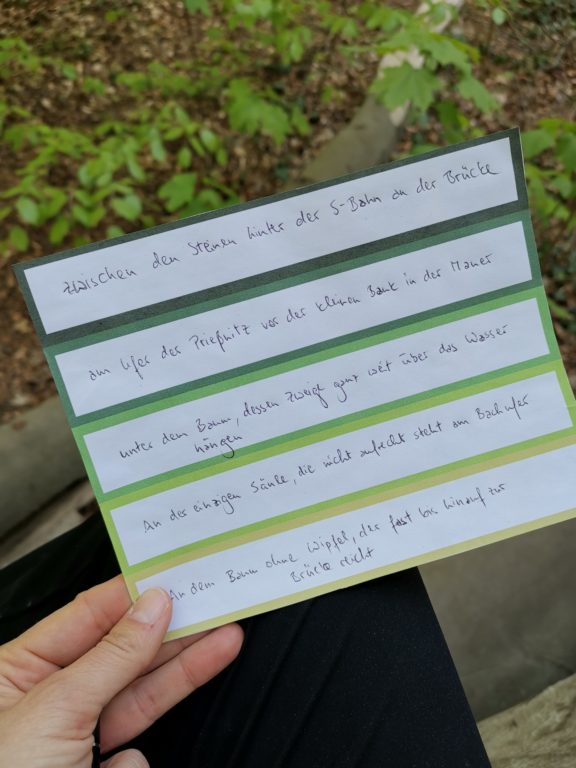 zwischen den Steinen hinter der S-Bahn an der Brücke
am Ufer der Prießnitz vor der kleinen Bank in der Mauer
unter dem Baum, dessen Zweige ganz weit über das Wasser
hängen
An der einzigen Säule, die nicht aufrecht steht am Bachufer
An dem Baum ohne Wipfel, der fast bis hinauf zur
Brücke reicht